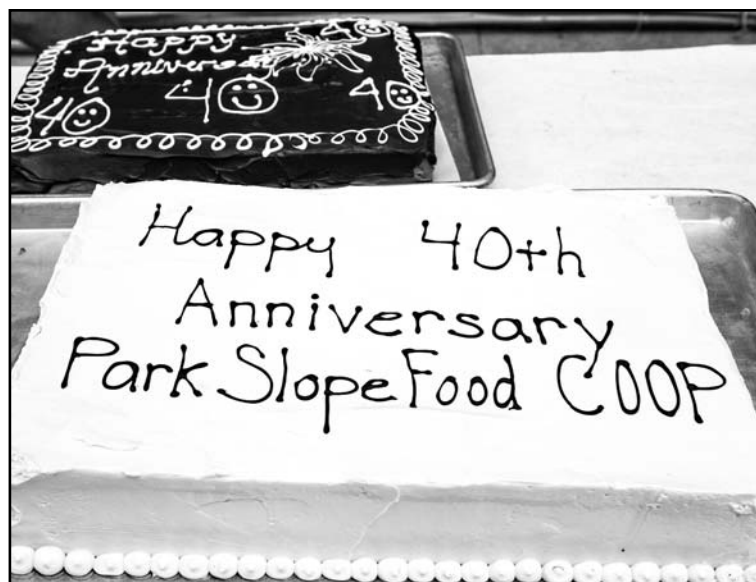 Happy
Anniversa
40
40
40
4
Happy 40th
Anniversary
Park Slope Food COOP